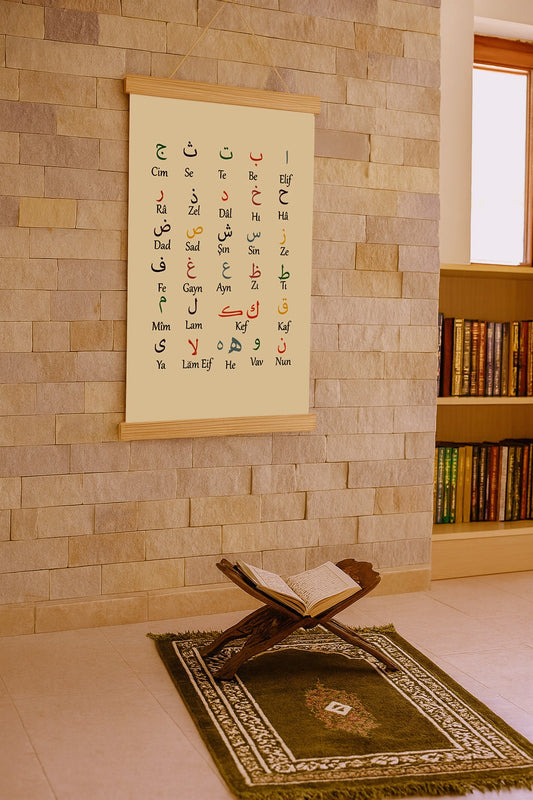 ا ب ت ث ج
Elif Be Te Se Cîm
ح خ د ذ ر
Hâ Hı Dâl Zel Râ
ز س ش ص ض
Ze Sin Şın Sad Dad
ط ظ ع غ ف
Tı Zı Ayn Gayn Fe
ق ك ڪ ل م
Kaf Kef Lam Mîm
ن و ه ه لا ى
Nun Vav He Lâm Eif Ya